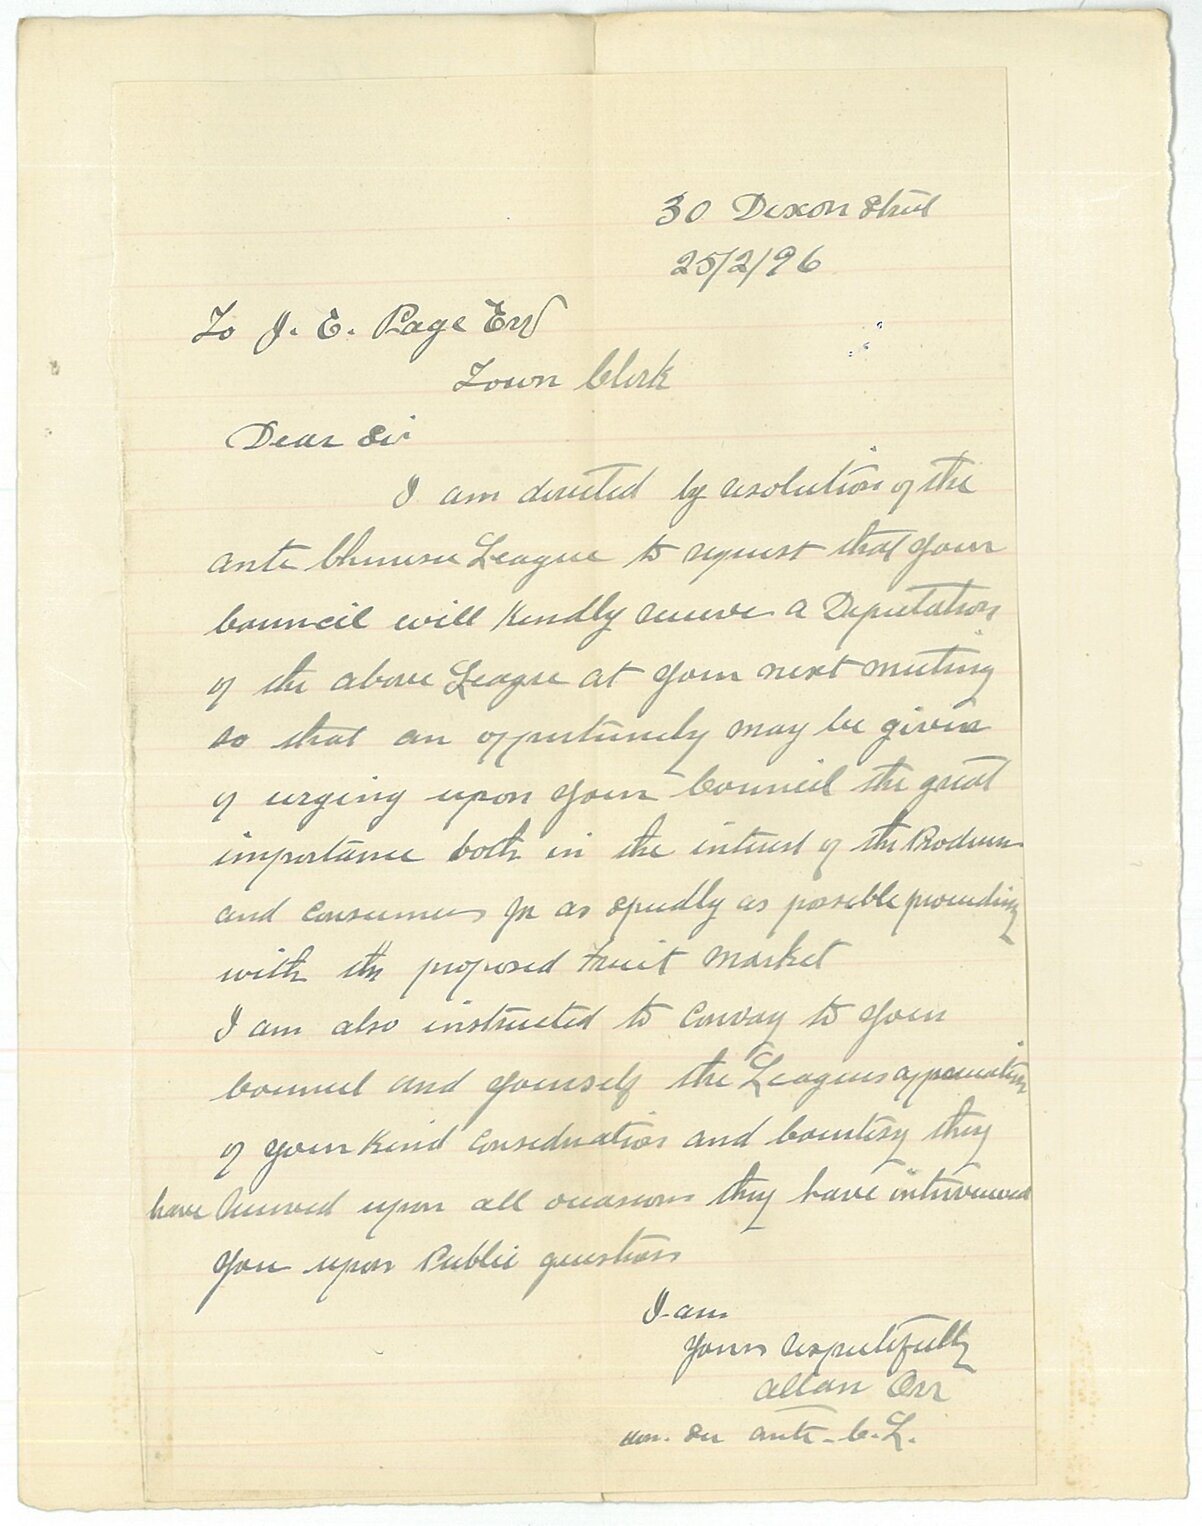 30 Dixon Street
25/2/96
To J. E. Page Esq
Town Clerk
Dear Sir
I am directed by resolution of the
ante Chinese League to request that your
Council will Kindly receive a Deputation
of the above League at your next meeting
so that an opportunety may be given
of urging upon your Council the great
importance both in the interest of the Producer
and consumers for as speedly as possible proceeding
with the proposed Fruit Market
I am also instructed to Convay to your
Council and yourself the Leagues appreciation
of your Kind Consideration and Courtesy they
have Received upon all occasions they have interviewed
you upon Public questions
I am
yours respectfully
Allan Orr
Hon. Sec ante-C.L.